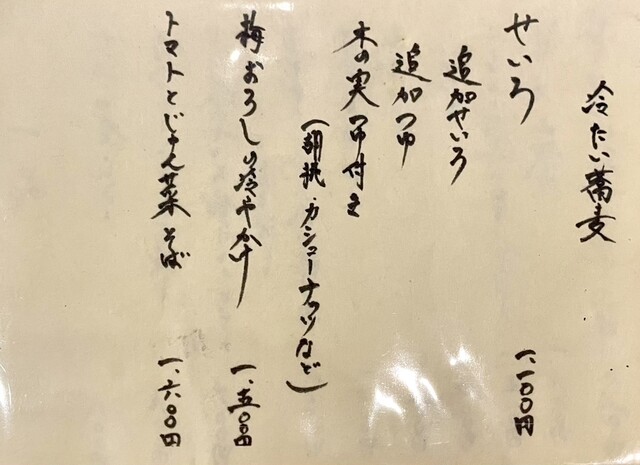 冷たい蕎麦
せいろ 一、一〇〇円
追加せいろ
追加つゆ
木の実つゆ付き
(胡桃・カシューナッツなど)
梅おろし冷やかけ 一、五〇〇円
トマトとじゅん菜そば 一、六〇〇円